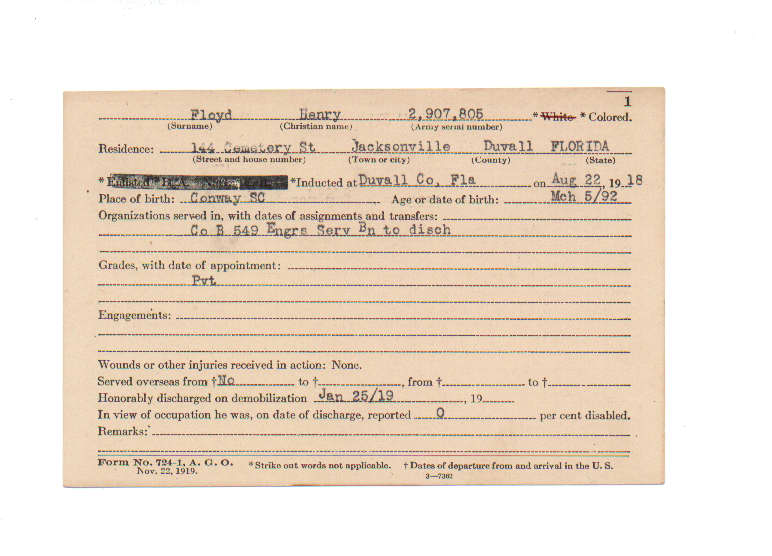 1
Floyd Henry 2,907,805 * White * Colored.
(Surname) (Christian name) (Army serial number)
Residence: 144 Cemetery St Jacksonville Duvall FLORIDA
(Street and house number) (Town or city) (County) (State)
* *Inducted at Duvall Co, Fla on Aug 22, 1918
Place of birth: Conway SC Age or date of birth: Mch 5/92
Organizations served in, with dates of assignments and transfers:
Co B 549 Engrs Serv Bn to disch
Grades, with date of appointment:
Pvt
Engagements:
Wounds or other injuries received in action: None.
Served overseas from †No to †, from † to †
Honorably discharged on demobilization Jan 25/19, 19
In view of occupation he was, on date of discharge, reported 0 per cent disabled.
Remarks:
Form No. 724-1, A. G. O. * Strike out words not applicable. † Dates of departure from and arrival in the U. S.
Nov. 22, 1919. 3—7362